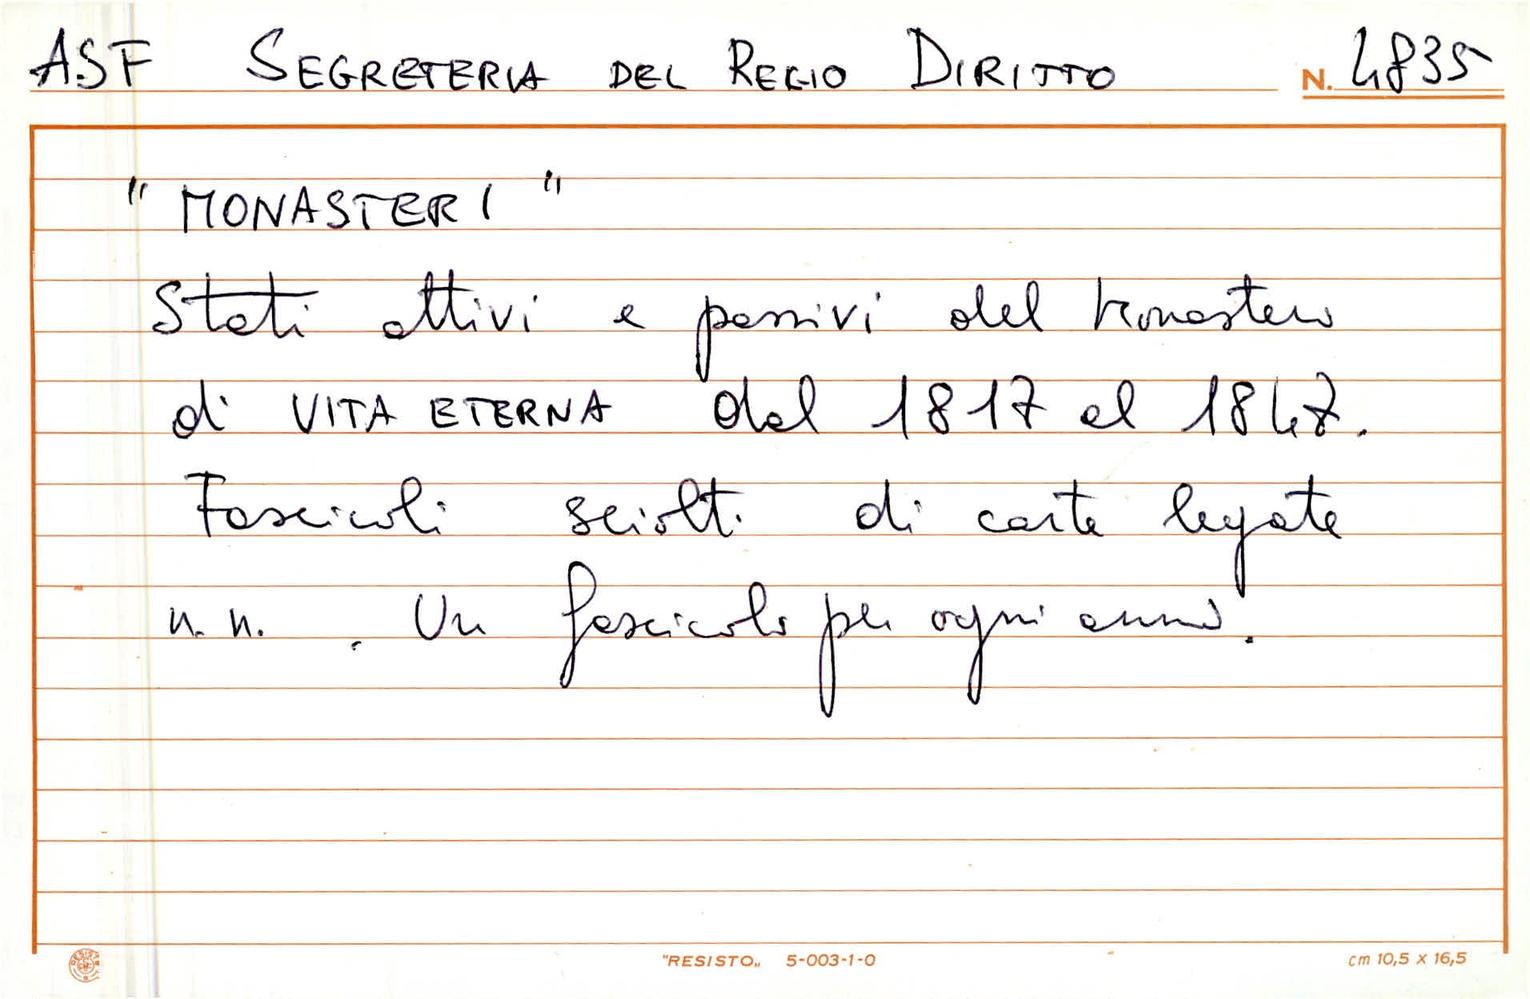 ASF SEGRETERIA DEL REGIO DIRITTO N. 4835
"MONASTERI"
Stati attivi e passivi del Monastero
di VITA ETERNA dal 1817 al 1847.
Fascicoli sciolti di carte legate
n. n. . Un fascicolo per ogni anno.
"RESISTO„ 5-003-1-0 cm 10,5 x 16,5